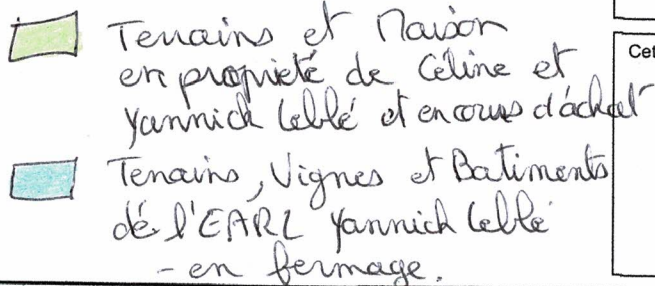 Terrains et Maison
en propriété de Céline et
Yannick Leblé et en cours d'áchat
Terrains, Vignes et Batiments
dé l'EARL Yannick Leblé
- en fermage.
Cet